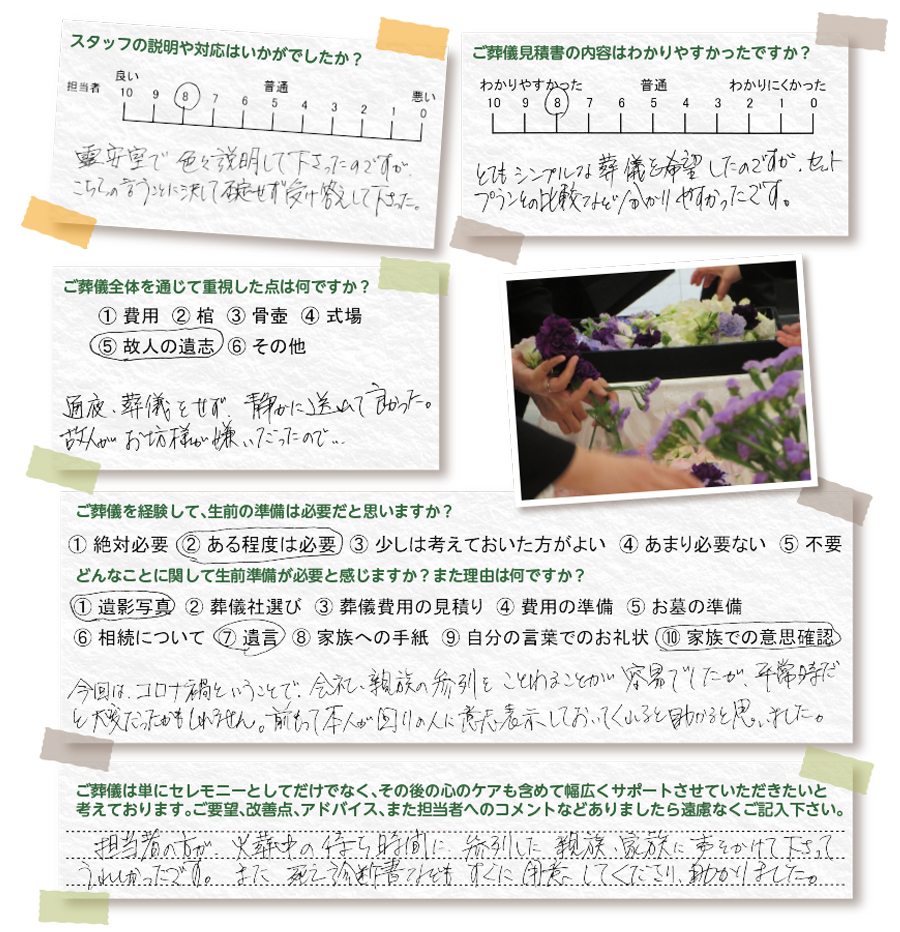 スタッフの説明や対応はいかがでしたか？
担当者
良い 普通 悪い
10 9 8 7 6 5 4 3 2 1 0
霊安室で色々説明して下さったのですが
こちらの言うことに決して否定せず受け答えして下さった。
ご葬儀見積書の内容はわかりやすかったですか？
わかりやすかった 普通 わかりにくかった
10 9 8 7 6 5 4 3 2 1 0
とてもシンプルな葬儀を希望したのですが、セット
プランとの比較など分かりやすかったです。
ご葬儀全体を通じて重視した点は何ですか？
① 費用 ② 棺 ③ 骨壺 ④ 式場
⑤ 故人の遺志 ⑥ その他
通夜、葬儀をせず、静かに送れて良かった。
故人がお坊様が嫌いだったので…
ご葬儀を経験して、生前の準備は必要だと思いますか？
① 絶対必要 ② ある程度は必要 ③ 少しは考えておいた方がよい ④ あまり必要ない ⑤ 不要
どんなことに関して生前準備が必要と感じますか？また理由は何ですか？
① 遺影写真 ② 葬儀社選び ③ 葬儀費用の見積り ④ 費用の準備 ⑤ お墓の準備
⑥ 相続について ⑦ 遺言 ⑧ 家族への手紙 ⑨ 自分の言葉でのお礼状 ⑩ 家族での意思確認
今回は、コロナ禍ということで、会社、親族の参列をことわることが容易でしたが、平常時だ
と大変だったかもしれません。前もって本人が回りの人に意志表示しておいてくれると助かると思いました。
ご葬儀は単にセレモニーとしてだけでなく、その後の心のケアも含めて幅広くサポートさせていただきたいと
考えております。ご要望、改善点、アドバイス、また担当者へのコメントなどありましたら遠慮なくご記入下さい。
担当者の方が、火葬中の待ち時間に、参列した親族、家族に声をかけて下さって
うれしかったです。また、死亡診断書なども すぐに用意してくださり、助かりました。